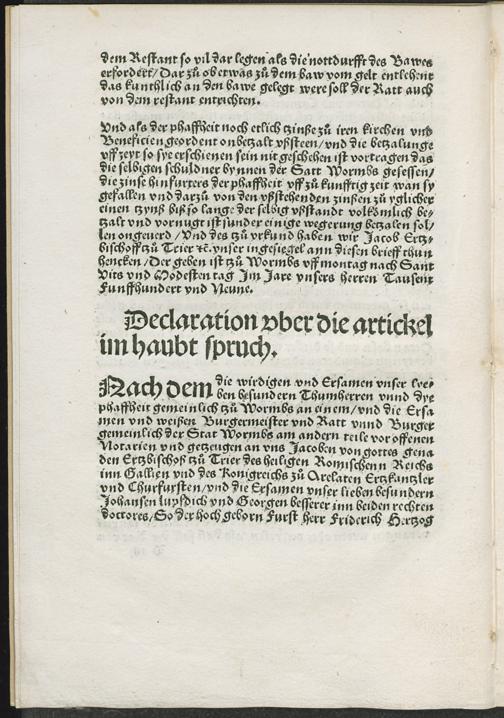 dem Restant so vil dar legen als die nottdurfft des Bawes
erfordert/ Dar zů ob etwas zů dem baw vom gelt entlehent
das kunthlich an den bawe gelegt were soll der Ratt auch
von dem restant entrichten.
Und als der phaffheit noch etlich tzinße zů iren kirchen vnd
Beneficien geordent onbetzalt vßsteen/ vnd die betzalunge
vff zeyt so sye erschienen sein nit geschehen ist vortragen das
die selbigen schuldner bynnen der Satt Wormbs gesessen/
die zinße hinfurters der phaffheit vff zů kunfftig zeit wan sy
gefallen vnd darzů von den vßstehenden zinßen zů yglicher
einen tzynß biß so lange der selbig vßstandt volkōmlich be-
tzalt vnd vornugt ist sunder einige wegerung betzalen sol/
len ongeuerd/ Vnd des tzů vrkund haben wir Jacob Ertz-
bischoff tzů Trier ꝛc. vnser ingesiegel ann diesen brieff thun
hencken/ Der geben ist tzů Wormbs vff montag nach Sant
Vits vnd Modesten tag Im Jare vnsers herren Tausent
Funffhundert vnd Neune.
Declaration vber die artickel
im haubt spruch.
Nach dem die wirdigen vnd Ersamen vnser lee-
ben besundern Thumherren vnnd dye
phaffheit gemeinlich zů Wormbs an einem/ vnd die Ersa
men vnd weißen Burgermeister vnd Ratt vnnd Burger
gemeinlich der Stat Wormbs am andern teile vor offenen
Notarien vnd getzeugen an vns Jacoben von gottes gena
den Ertzbischoff tzů Trier des heiligen Romischenn Reichs
inn Gallien vnd des Konigreichs zů Arelaten Ertzkantzler
vnd Churfursten/ vnd die Ersamen vnser lieben besundern
Johansen vnd Georgen besserer inn beiden rechten
doctores/ So der hoch geborn Furst herr Friderich Hertzog